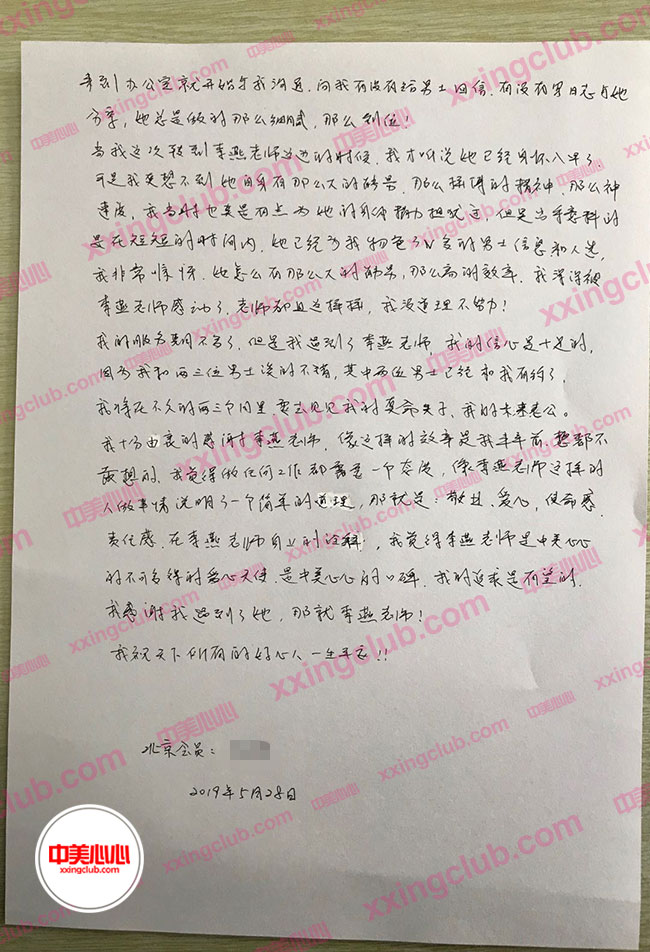 来到办公室就开始与我沟通,问我有没有给男士回信,有没有写日志与她
分享,她总是做的那么细腻,那么到位!
当我这次我到李燕老师这边的时候,我才听说她已经身怀六甲了,
可是我更想不到她自身有那么大的能量,那么拼搏的精神,那么神
速度,我当时也真是有点为她的身体担忧过,但是出乎意料的
是在短短的时间内,她已经为我物色了N多的男士信息和人选,
我非常惊讶,她怎么有那么大的能量,那么高的效率,我深深被
李燕老师感动了,老师都且这样拼,我没道理不努力!
我的服务期不多了,但是我遇到了李燕老师,我的信心是十足的,
因为我和两三位男士谈的不错,其中两位男士已经和我有约了,
我将在不久的两三个月里,要去见见我的真命天子,我的未来老公。
我十分由衷的感谢李燕老师,像这样的效率是我半年前想都不
敢想的,我觉得做任何工作都需要一个态度,像李燕老师这样的
人做事情说明了一个简单的道理,那就是:敬业,爱心,使命感,
责任感,在李燕老师身上得到诠释,我觉得李燕老师是中美心心
的不可多得的爱心天使,是中美心心的口碑,我的追求是有望的,
我感谢我遇到了她,那就李燕老师!
我祝天下所有的好心人一生平安!!
北京会员:
2019年5月28日
中美心心
xxingclub.com